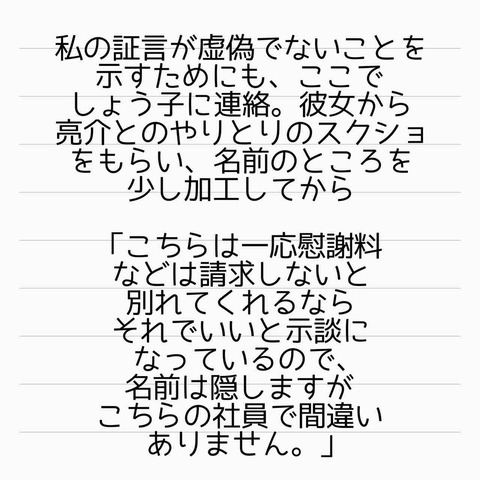 私の証言が虚偽でないことを
示すためにも、ここで
しょう子に連絡。彼女から
亮介とのやりとりのスクショ
をもらい、名前のところを
少し加工してから
「こちらは一応慰謝料
などは請求しないと
別れてくれるなら
それでいいと示談に
なっているので、
名前は隠しますが
こちらの社員で間違い
ありません。」